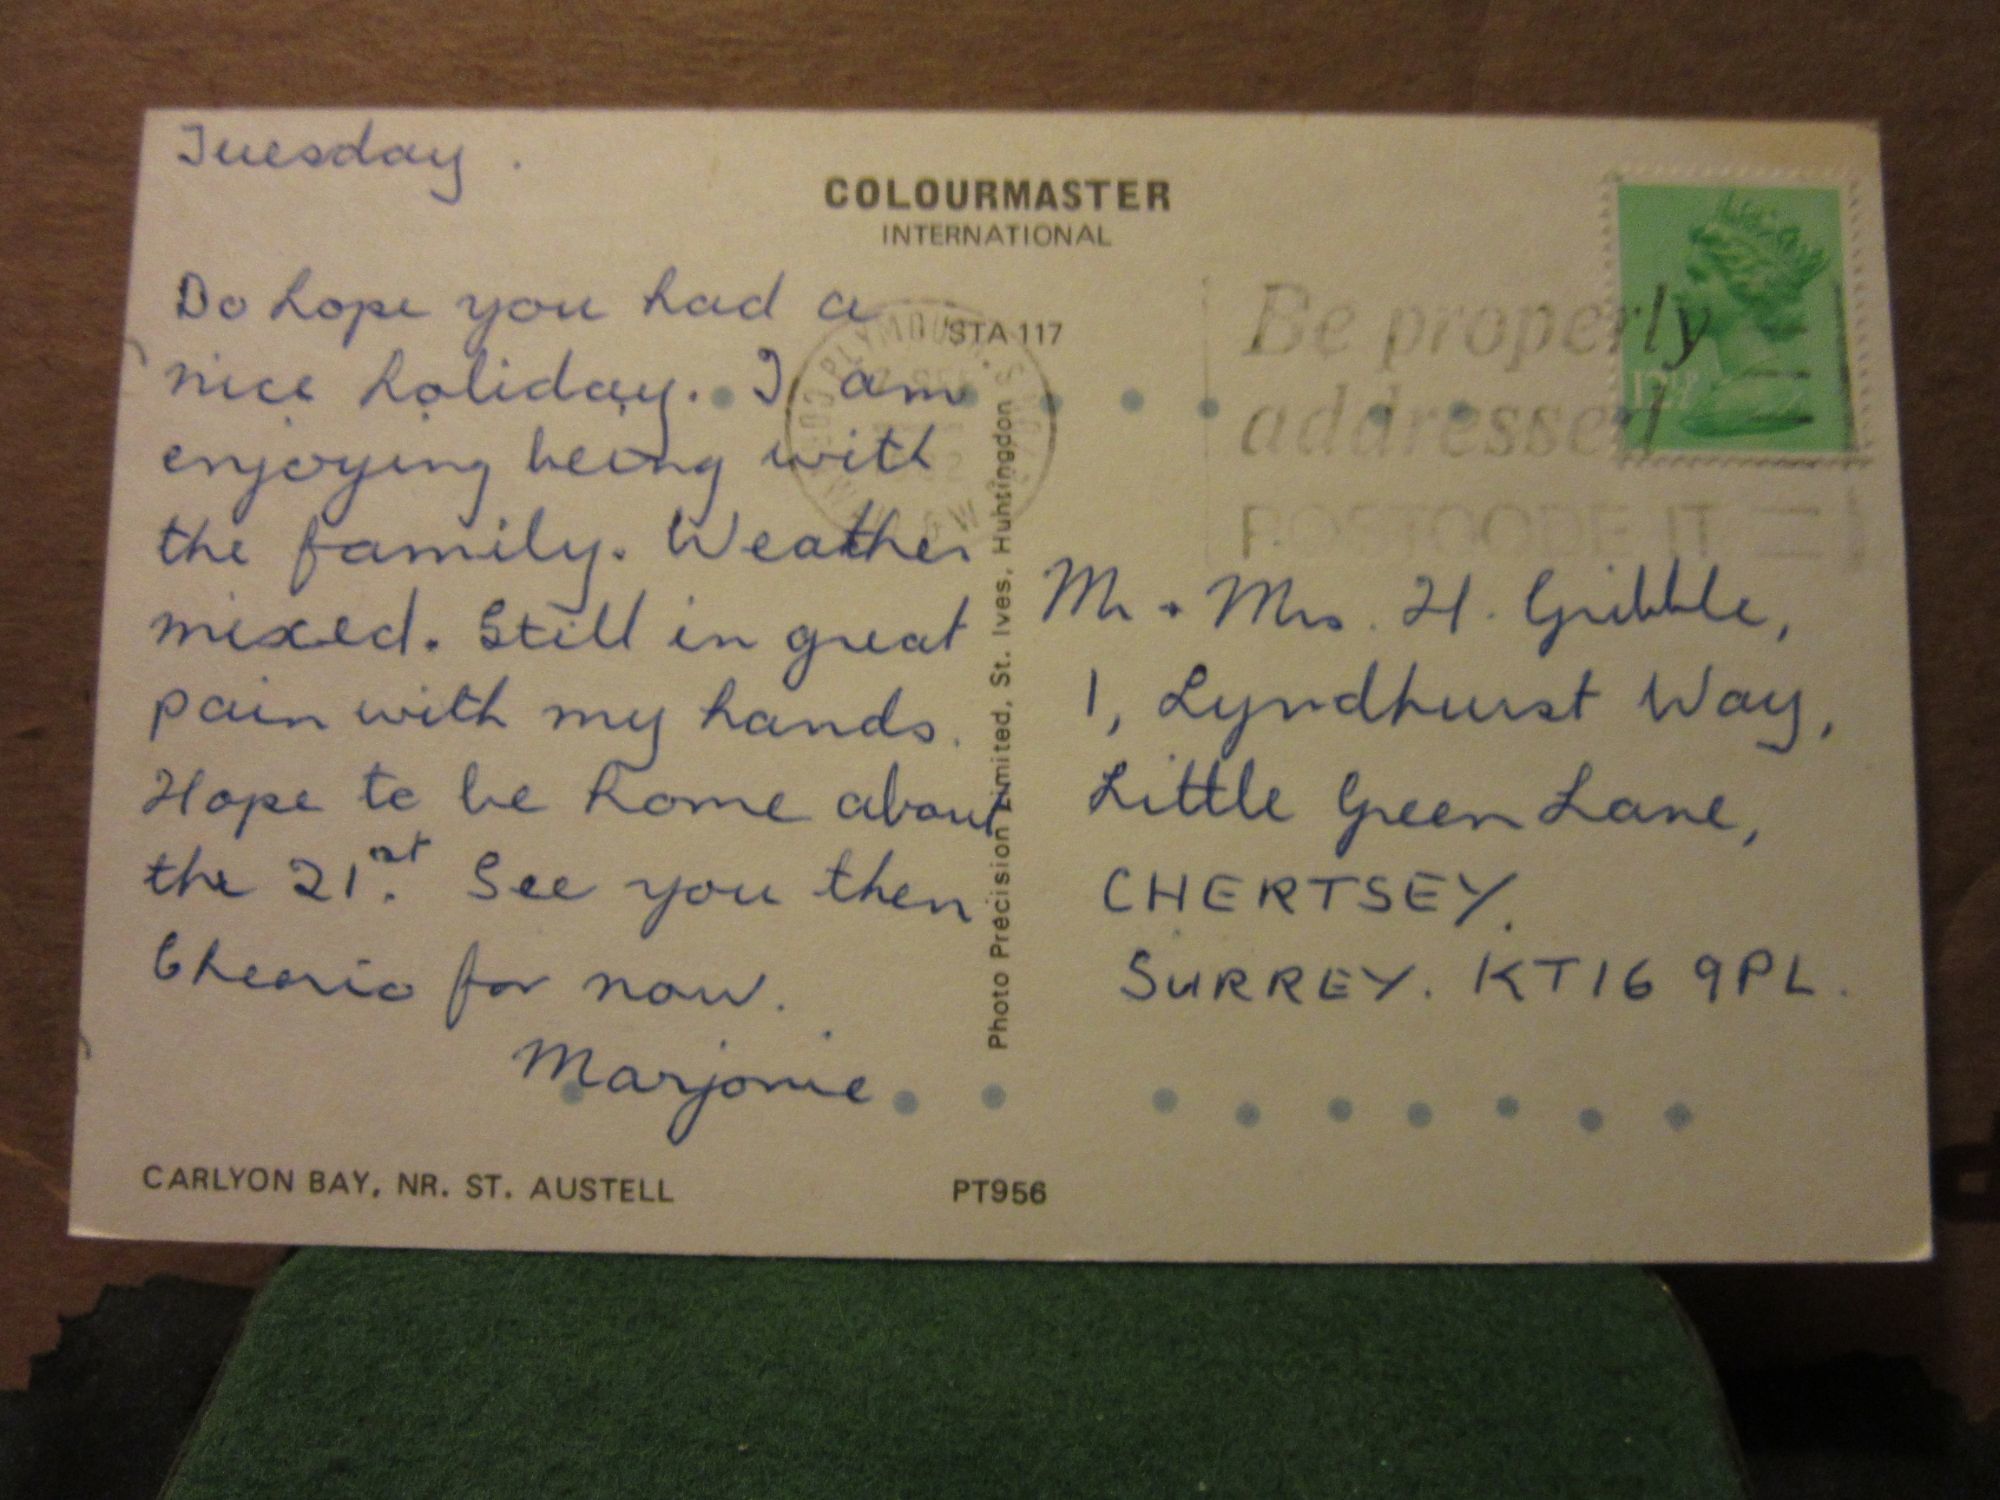 Tuesday.
COLOURMASTER
INTERNATIONAL
STA 117
Do hope you had a
nice holiday. I am
enjoying being with
the family. Weather
mixed. Still in great
pain with my hands.
Hope to be home about
the 21st. See you then
Cheerio for now.
Marjorie
CARLYON BAY, NR. ST. AUSTELL
PT956
Photo Precision Limited, St. Ives, Huntingdon
PLYMOUTH
CORNWALL
Be properly
addressed
POSTCODE IT
Mr + Mrs. H. Gribble,
1, Lyndhurst Way,
Little Green Lane,
CHERTSEY.
SURREY. KT16 9PL.